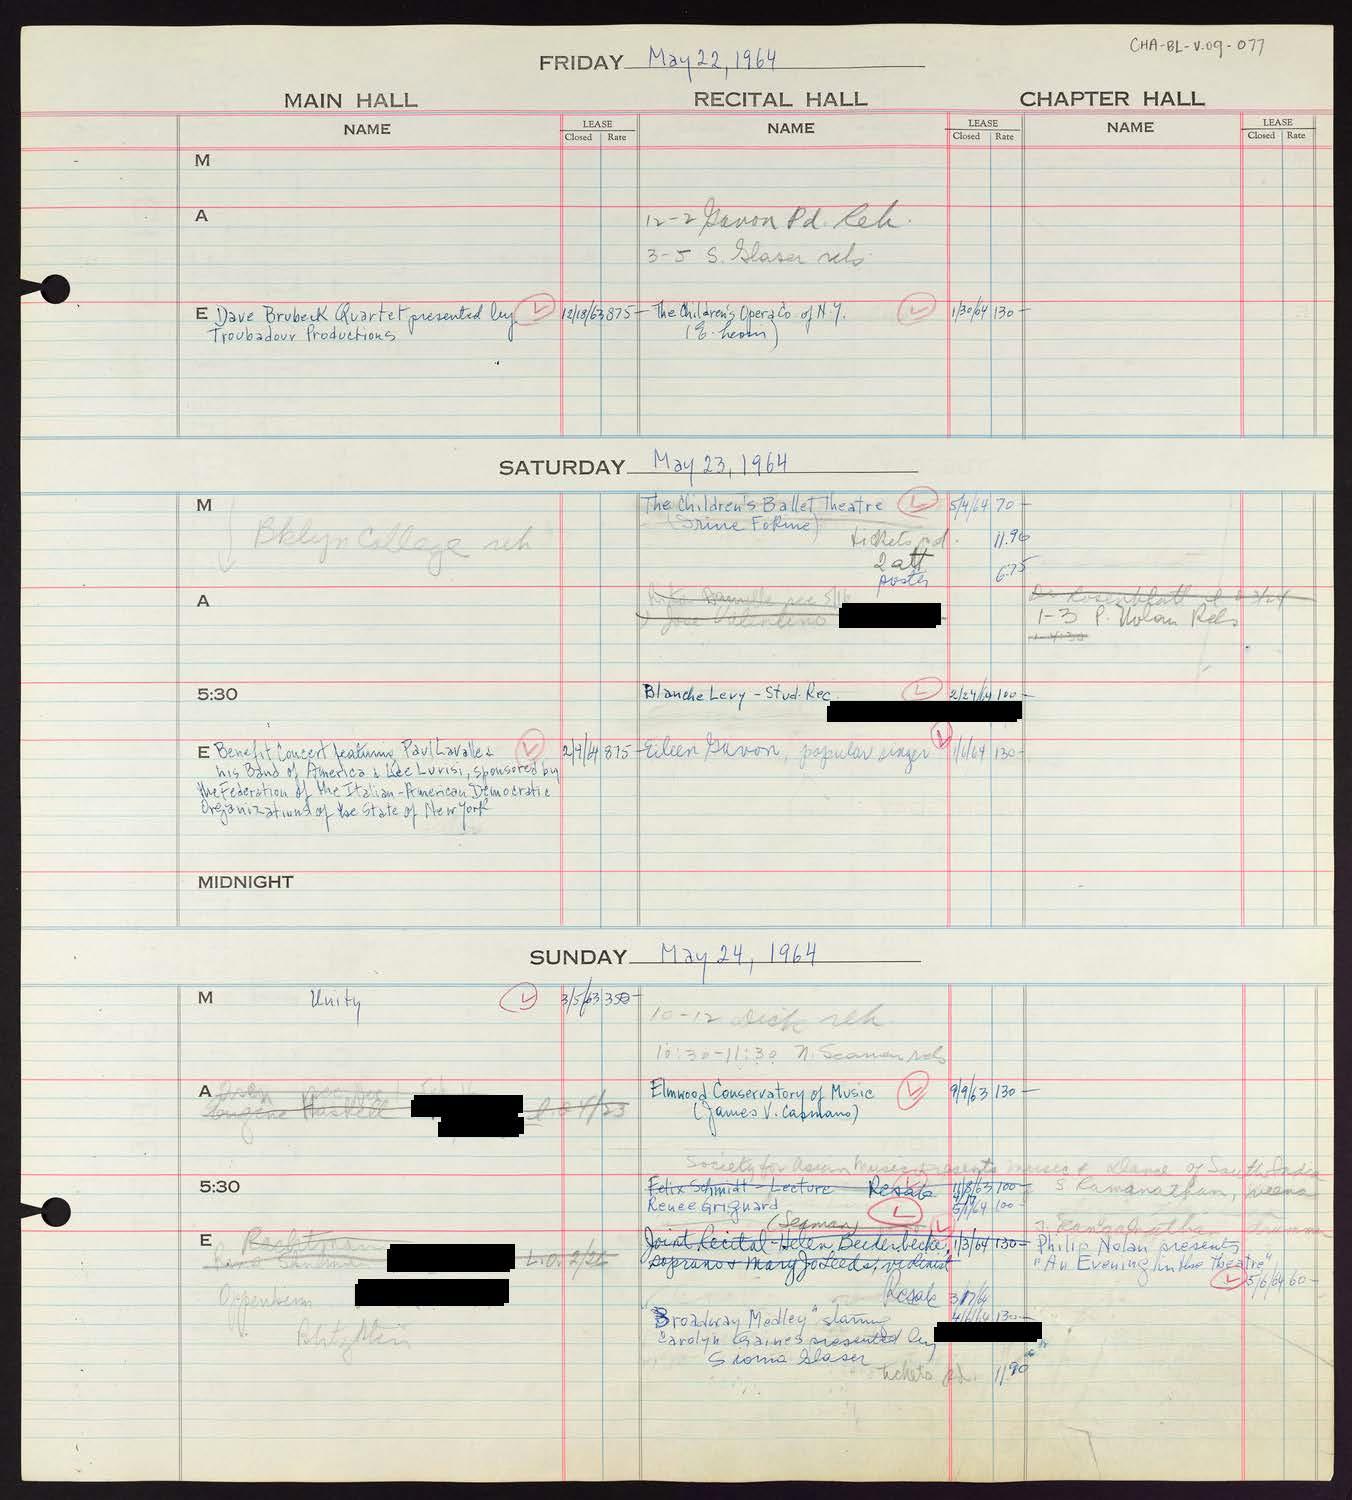 CHA-BL-V.09-077
FRIDAY May 22, 1964
MAIN HALL RECITAL HALL CHAPTER HALL
NAME LEASE NAME LEASE NAME LEASE
Closed Rate Closed Rate Closed Rate
M
A 12-2 Gavon Pd. Reh.
3-5 S. Glaser reh
E Dave Brubeck Quartet presented by 12/18/63 875- The Children's Opera Co. of N.Y. 1/30/64 130-
Troubadour Productions
SATURDAY May 23, 1964
M The Children's Ballet Theatre 5/4/64 70-
(Irine Fokine)
Bklyn College reh tickets pd. 11.90
2 att
poster 6.75
A
Jose Valentino 1-3 P. Nolan Reh
1-4:30
5:30 Blanche Levy - Stud. Rec. 2/24/64 100-
E Benefit Concert featuring Paul Lavalle & 2/4/64 875- Eileen Gavon, popular singer 1/6/64 130-
his Band of America & Lee Luvisi, sponsored by
the Federation of the Italian-American Democratic
Organizations of the State of New York
MIDNIGHT
SUNDAY May 24, 1964
M Unity 3/5/63 350-
10-12 reh
10:30-11:30 N. Seaman reh
A Elmwood Conservatory of Music 9/9/63 130-
Eugene Haskell 4/23
(James V. Capmano)
Society for Asian Music presents music & dance of South India
5:30 Felix Schmidt - Lecture Resale 11/8/63 100-
S. Ramanathan, veena
Renee Grignard 5/1/64 100-
(Seaman)
E Joint Recital - Helen Beiderbecke, 1/3/64 130- Philip Nolan presents
L.O. 2/26
soprano & Mary Jo Leeds, violinist "An Evening in the Theatre"
5/6/64 60-
Oppenheim
Resale 3/17/64
"Broadway Medley" starring 4/6/64 130-
Carolyn Raines presented by
Sioma Glaser
tickets pd. 11.90